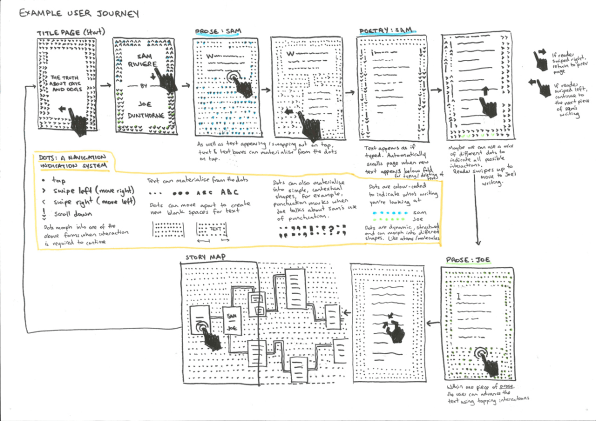 EXAMPLE USER JOURNEY
TITLE PAGE (Start)
THE TRUTH
ABOUT CATS
AND DOGS
SAM
RIVIERE
BY
JOE
DUNTHORNE
PROSE: SAM
W
As well as text appearing/swapping out on tap,
text & text boxes can materialise from the dots
on tap.
W
POETRY: SAM
I
Text appears as if
typed. Automatically
scrolls page when new
text appears below fold
I
Maybe we can use a mix
of different dots to
indicate all possible
interactions.
Reader swipes up
to move to Joe's
writing.
If reader
swiped right,
return to prev
page
If reader
swiped left,
continue to
the next piece
of Sam's
writing
DOTS: A NAVIGATION
INDICATION SYSTEM
• tap
> swipe left (move right)
< swipe right (move left)
scroll down
Dots morph into one of the
above forms when interaction
is required to continue
Text can materialise from the dots
ABC ABC
Dots can move apart to create
new blank spaces for text
TEXT
Dots can also materialise
into simple, contextual
shapes, for example,
punctuation marks when
Joe talks about Sam's use
of punctuation.
Dots are colour-coded
to indicate what writing
you're looking at
SAM
JOE
Dots are dynamic, structured
and can morph into different
shapes. Like atoms/molecules
STORY MAP
SAM
JOE
PROSE: JOE
I
When one piece of prose
the user can advance the
text using tapping interactions